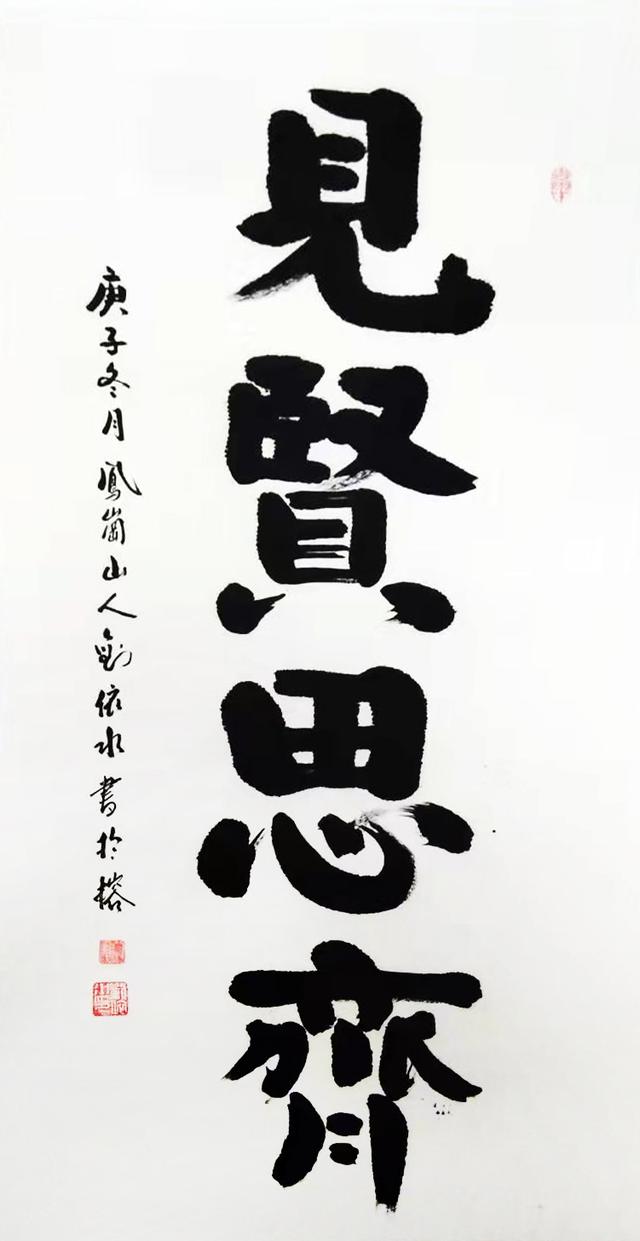 見賢思齊
庚子冬月鳳崗山人劉依水書於榕